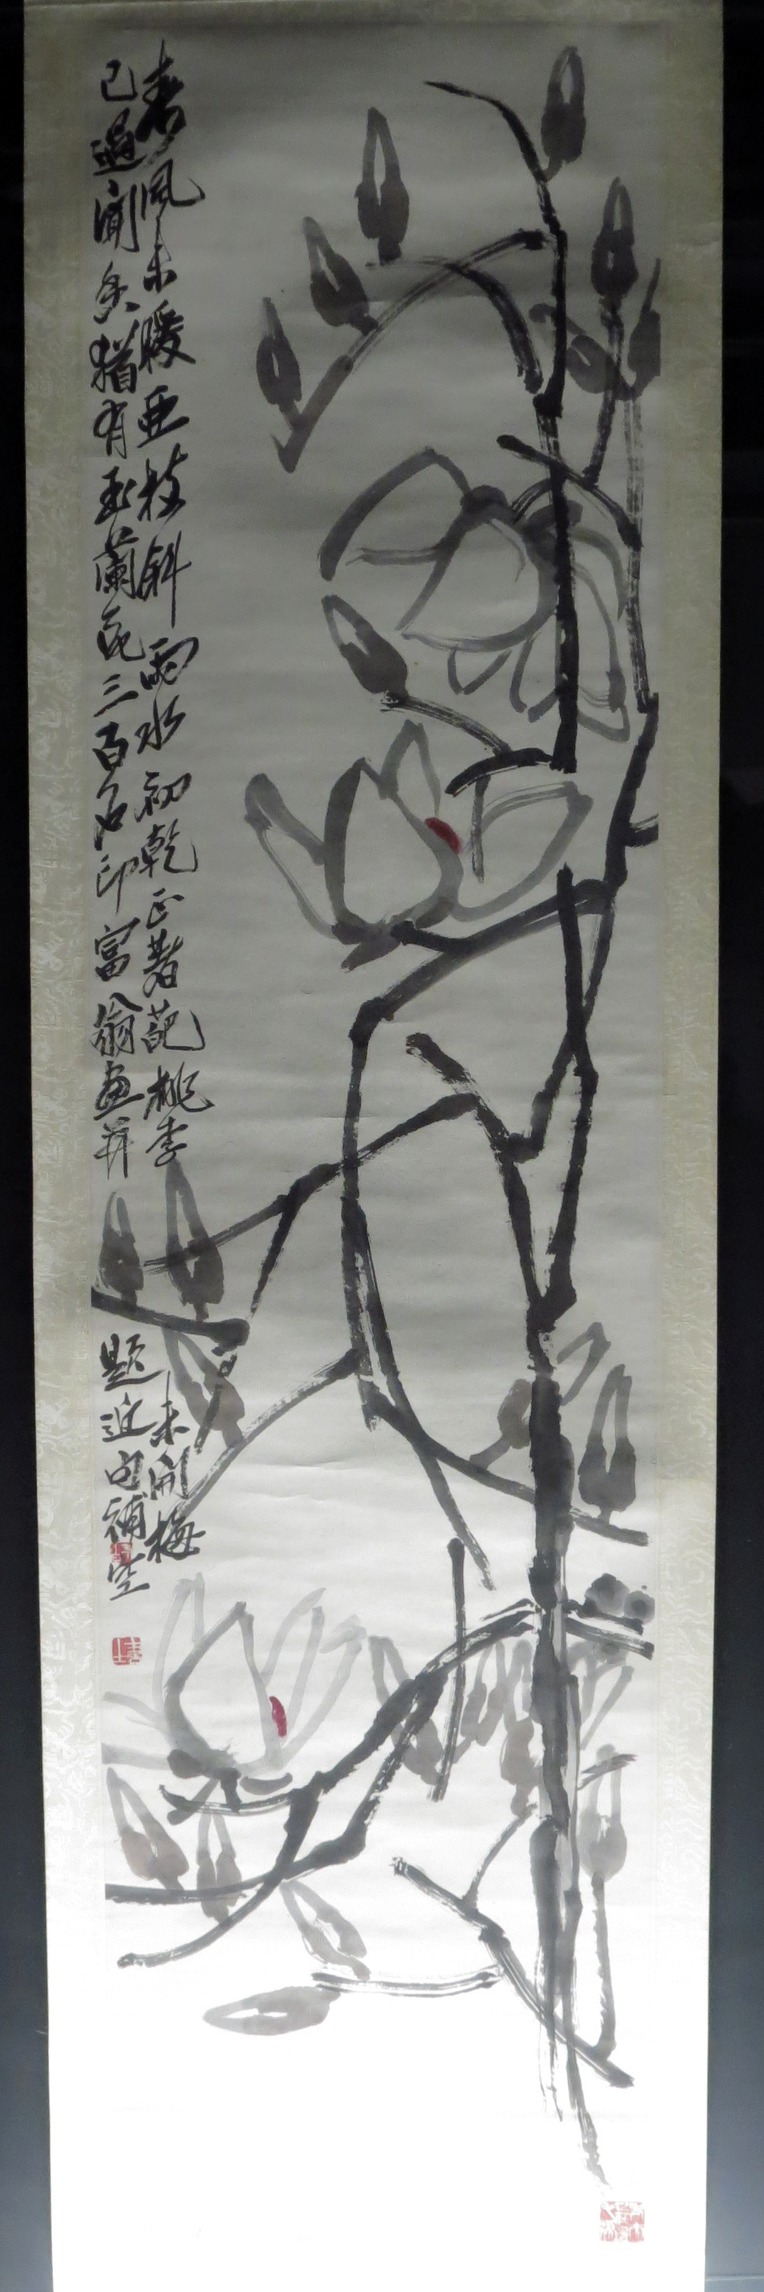 春風未暖亞枝斜雨水初乾正著葩桃李未開梅
已過聞香猶有玉蘭花三百石印富翁畫并題近句補空